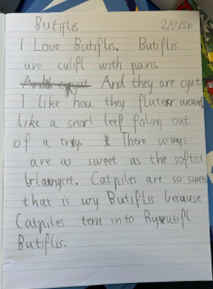 Butiflis 2/2/26
I Love Butiflis. Butiflis
are culifl with pans.
And they are cyut
I like how they fluter around
like a smorl leef faling out
of a try. There wings
are as sweet as the softist
blangcet. Catpiles are so sweet
that is wry Butiflis because
Catpiles tern into Byoutifl
Butiflis.